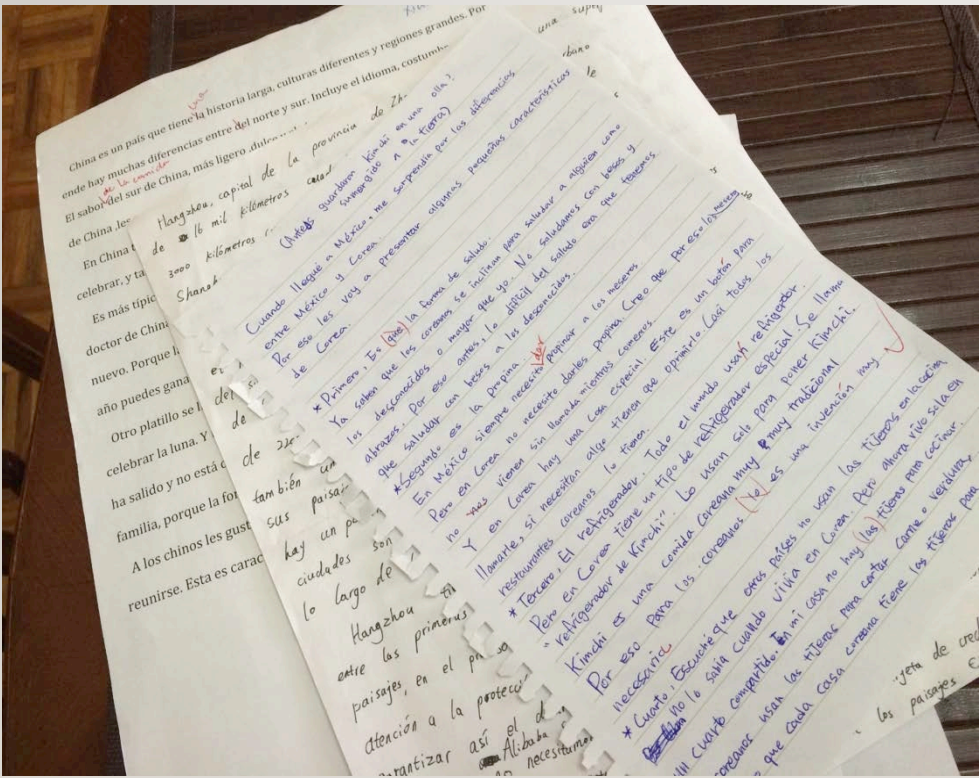 China es un país que tiene la historia larga, culturas diferentes y regiones grandes. Por
una
ende hay muchas diferencias entre del norte y sur. Incluye el idioma, costumb
de la comida
El sabor del sur de China, más ligero, dulce
de China, les
En China t
celebrar, y ta
Es más típic
doctor de China
nuevo. Porque l
año puedes gana
Otro platillo se l
celebrar la luna. Y
ha salido y no está c
familia, porque la for
A los chinos les gust
reunirse. Esta es carac
Hangzhou, capital de la provincia de Zh
de 16 mil kilómetros cuad
3000 kilómetros
Shangh
de
de
también un
sus paisaj
hay un pa
ciudades son
lo largo de
Hangzhou
entre las primeras
paisajes, en el
atención a la protecci
garantizar así el d
Alibaba
necesitamos
una super
urbano
(Antes guardaron Kimchi en una olla?
sumergido a la tierra)
Cuando llegué a México, me sorprendía por las diferencias
entre México y Corea.
Por eso les voy a presentar algunas pequeñas características
de Corea.
* Primero, Es (que) la forma de saludo.
Ya saben que los coreanos se inclinan para saludar a alguien como
los desconocidos o mayor que yo. No saludamos con besos y
abrazos. Por eso antes, lo difícil del saludo era que tenemos
que saludar con besos a los desconocidos.
* Segundo es la propina.
dar
En México siempre necesito propinar a los meseros
Pero en Corea no necesito darles propina. Creo que por eso los meseros
no nos vienen sin llamada mientras comemos.
Y en Corea hay una cosa especial. Este es un botón para
llamarle, si necesitan algo tienen que oprimirlo. Casi todos los
restaurantes coreanos lo tienen.
* Tercero, El refrigerador. Todo el mundo usan refrigerador.
Pero en Corea tiene un tipo de refrigerador especial. Se llama
"refrigerador de Kimchi". Lo usan solo para poner Kimchi.
Kimchi es una comida coreana muy y muy tradicional
Por eso para los coreanos (y) es una invención muy
necesaria.
* Cuarto, Escuche que otros países no usan las tijeras en la cocina
no lo sabía cuando vivía en Corea. Pero ahora vivo sola en
un cuarto compartido. En mi casa no hay (las) tijeras para cocinar.
coreanos usan las tijeras para cortar carne o verdura,
que cada casa coreana tiene las tijeras para
jeta de cred
los paisajes